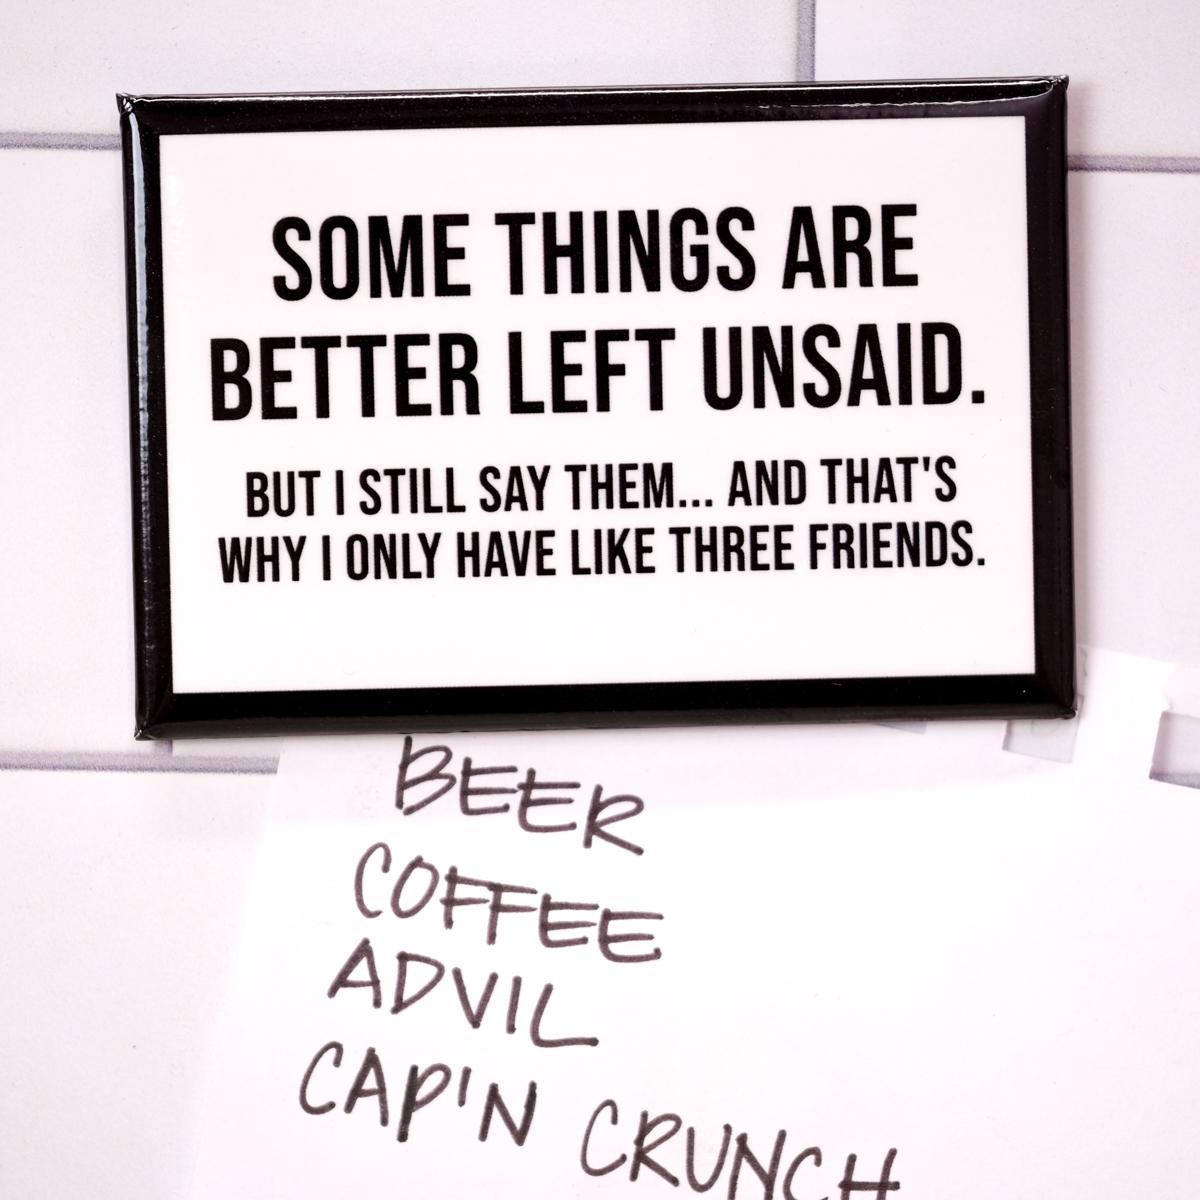 SOME THINGS ARE
BETTER LEFT UNSAID.
BUT I STILL SAY THEM... AND THAT'S
WHY I ONLY HAVE LIKE THREE FRIENDS.
BEER
COFFEE
ADVIL
CAP'N CRUNCH